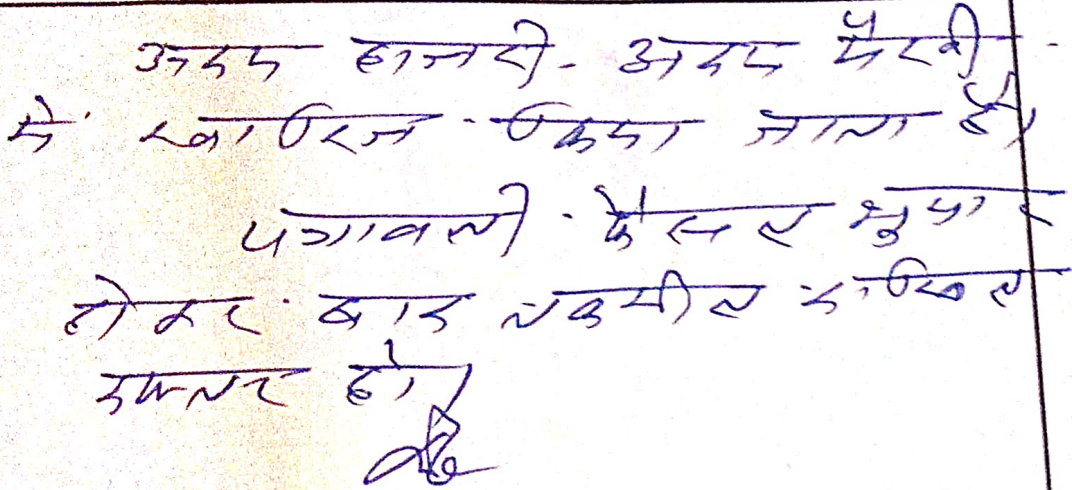 अदम हाजरी - अदम पैरवी
में खारिज किया जाता है।
पत्रावली फैसल शुमार
होकर बाद तकमील दाखिल
दफ्तर हो।